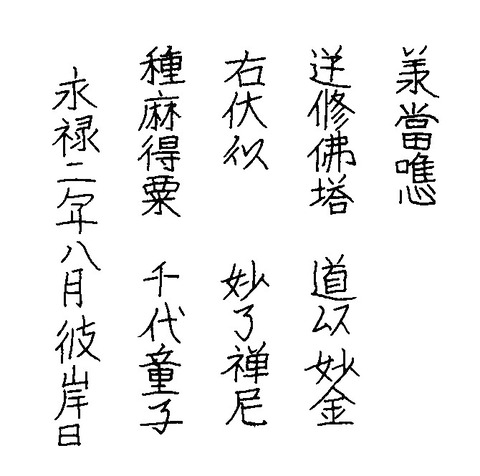 羕當噟
逆修佛塔 道以妙金
右伏以 妙了禅尼
種麻得粟 千代童子
永禄二年八月彼岸日